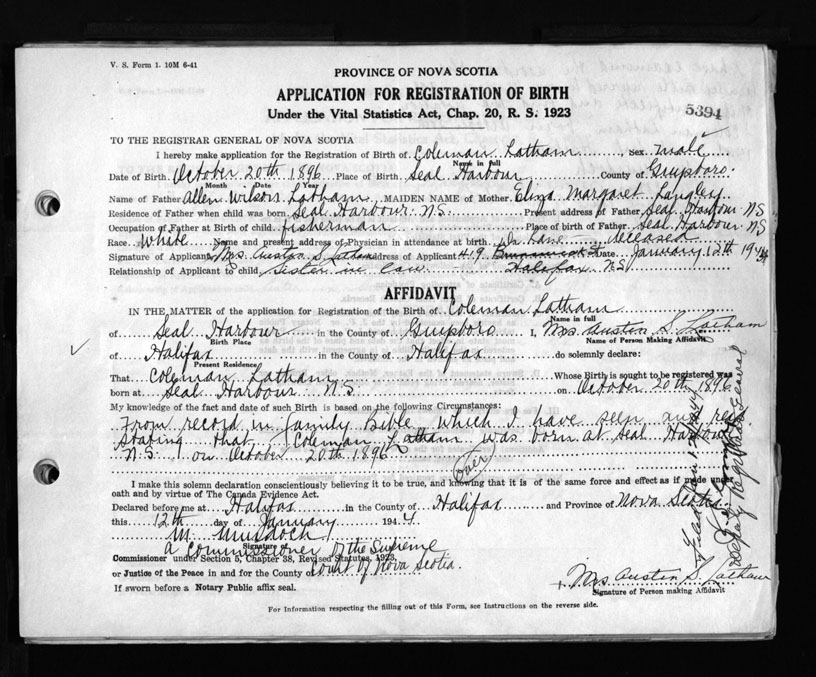 V. S. Form 1. 10M 6-41
PROVINCE OF NOVA SCOTIA
APPLICATION FOR REGISTRATION OF BIRTH
Under the Vital Statistics Act, Chap. 20, R. S. 1923
5394
TO THE REGISTRAR GENERAL OF NOVA SCOTIA
I hereby make application for the Registration of Birth of Coleman Latham, Sex male
Name in full
Date of Birth October 20th 1896 Place of Birth Seal Harbour County of Guysboro:
Month Date Year
Name of Father Allen Wilson Latham MAIDEN NAME of Mother Eliza Margaret Langley
Residence of Father when child was born Seal Harbour: N.S: Present address of Father Seal Harbour N S
Occupation of Father at Birth of child fisherman Place of birth of Father Seal Harbour N S
Race White Name and present address of Physician in attendance at birth Dr. deceased
Signature of Applicant Mrs. Austin S. Latham Address of Applicant 419 Date January 12th 1944
Relationship of Applicant to child Sister in law Halifax N S
AFFIDAVIT
IN THE MATTER of the application for Registration of the Birth of Coleman Latham
Name in full
of Seal Harbour in the County of Guysboro I, Mrs. Austin S. Latham
Birth Place Name of Person Making Affidavit
of Halifax in the County of Halifax do solemnly declare:
Present Residence
That Coleman Latham Whose Birth is sought to be registered was
born at Seal Harbour N S on October 20th 1896
My knowledge of the fact and date of such Birth is based on the following Circumstances:
From record in family Bible which I have seen and read
stating that Coleman Latham was born at Seal Harbour
N.S. on October 20th 1896
(over)
I make this solemn declaration conscientiously believing it to be true, and knowing that it is of the same force and effect as if made under
oath and by virtue of The Canada Evidence Act.
Declared before me at Halifax in the County of Halifax and Province of Nova Scotia
this 12th day of January 1944
M. Murdoch
Signature of
A Commissioner of the Supreme
Commissioner under Section 5, Chapter 38, Revised Statutes, 1923
or Justice of the Peace in and for the County of Court of Nova Scotia.
If sworn before a Notary Public affix seal.
Mrs. Austin S. Latham
Signature of Person making Affidavit
For Information respecting the filling out of this Form, see Instructions on the reverse side.
Deputy Registrar General